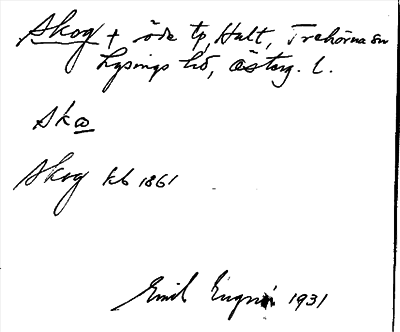 Skog + öde tp, Hult, Trehörna sn
Lysings hd, Österg. l.
Sko
Skog kb 1861
Emil 1931